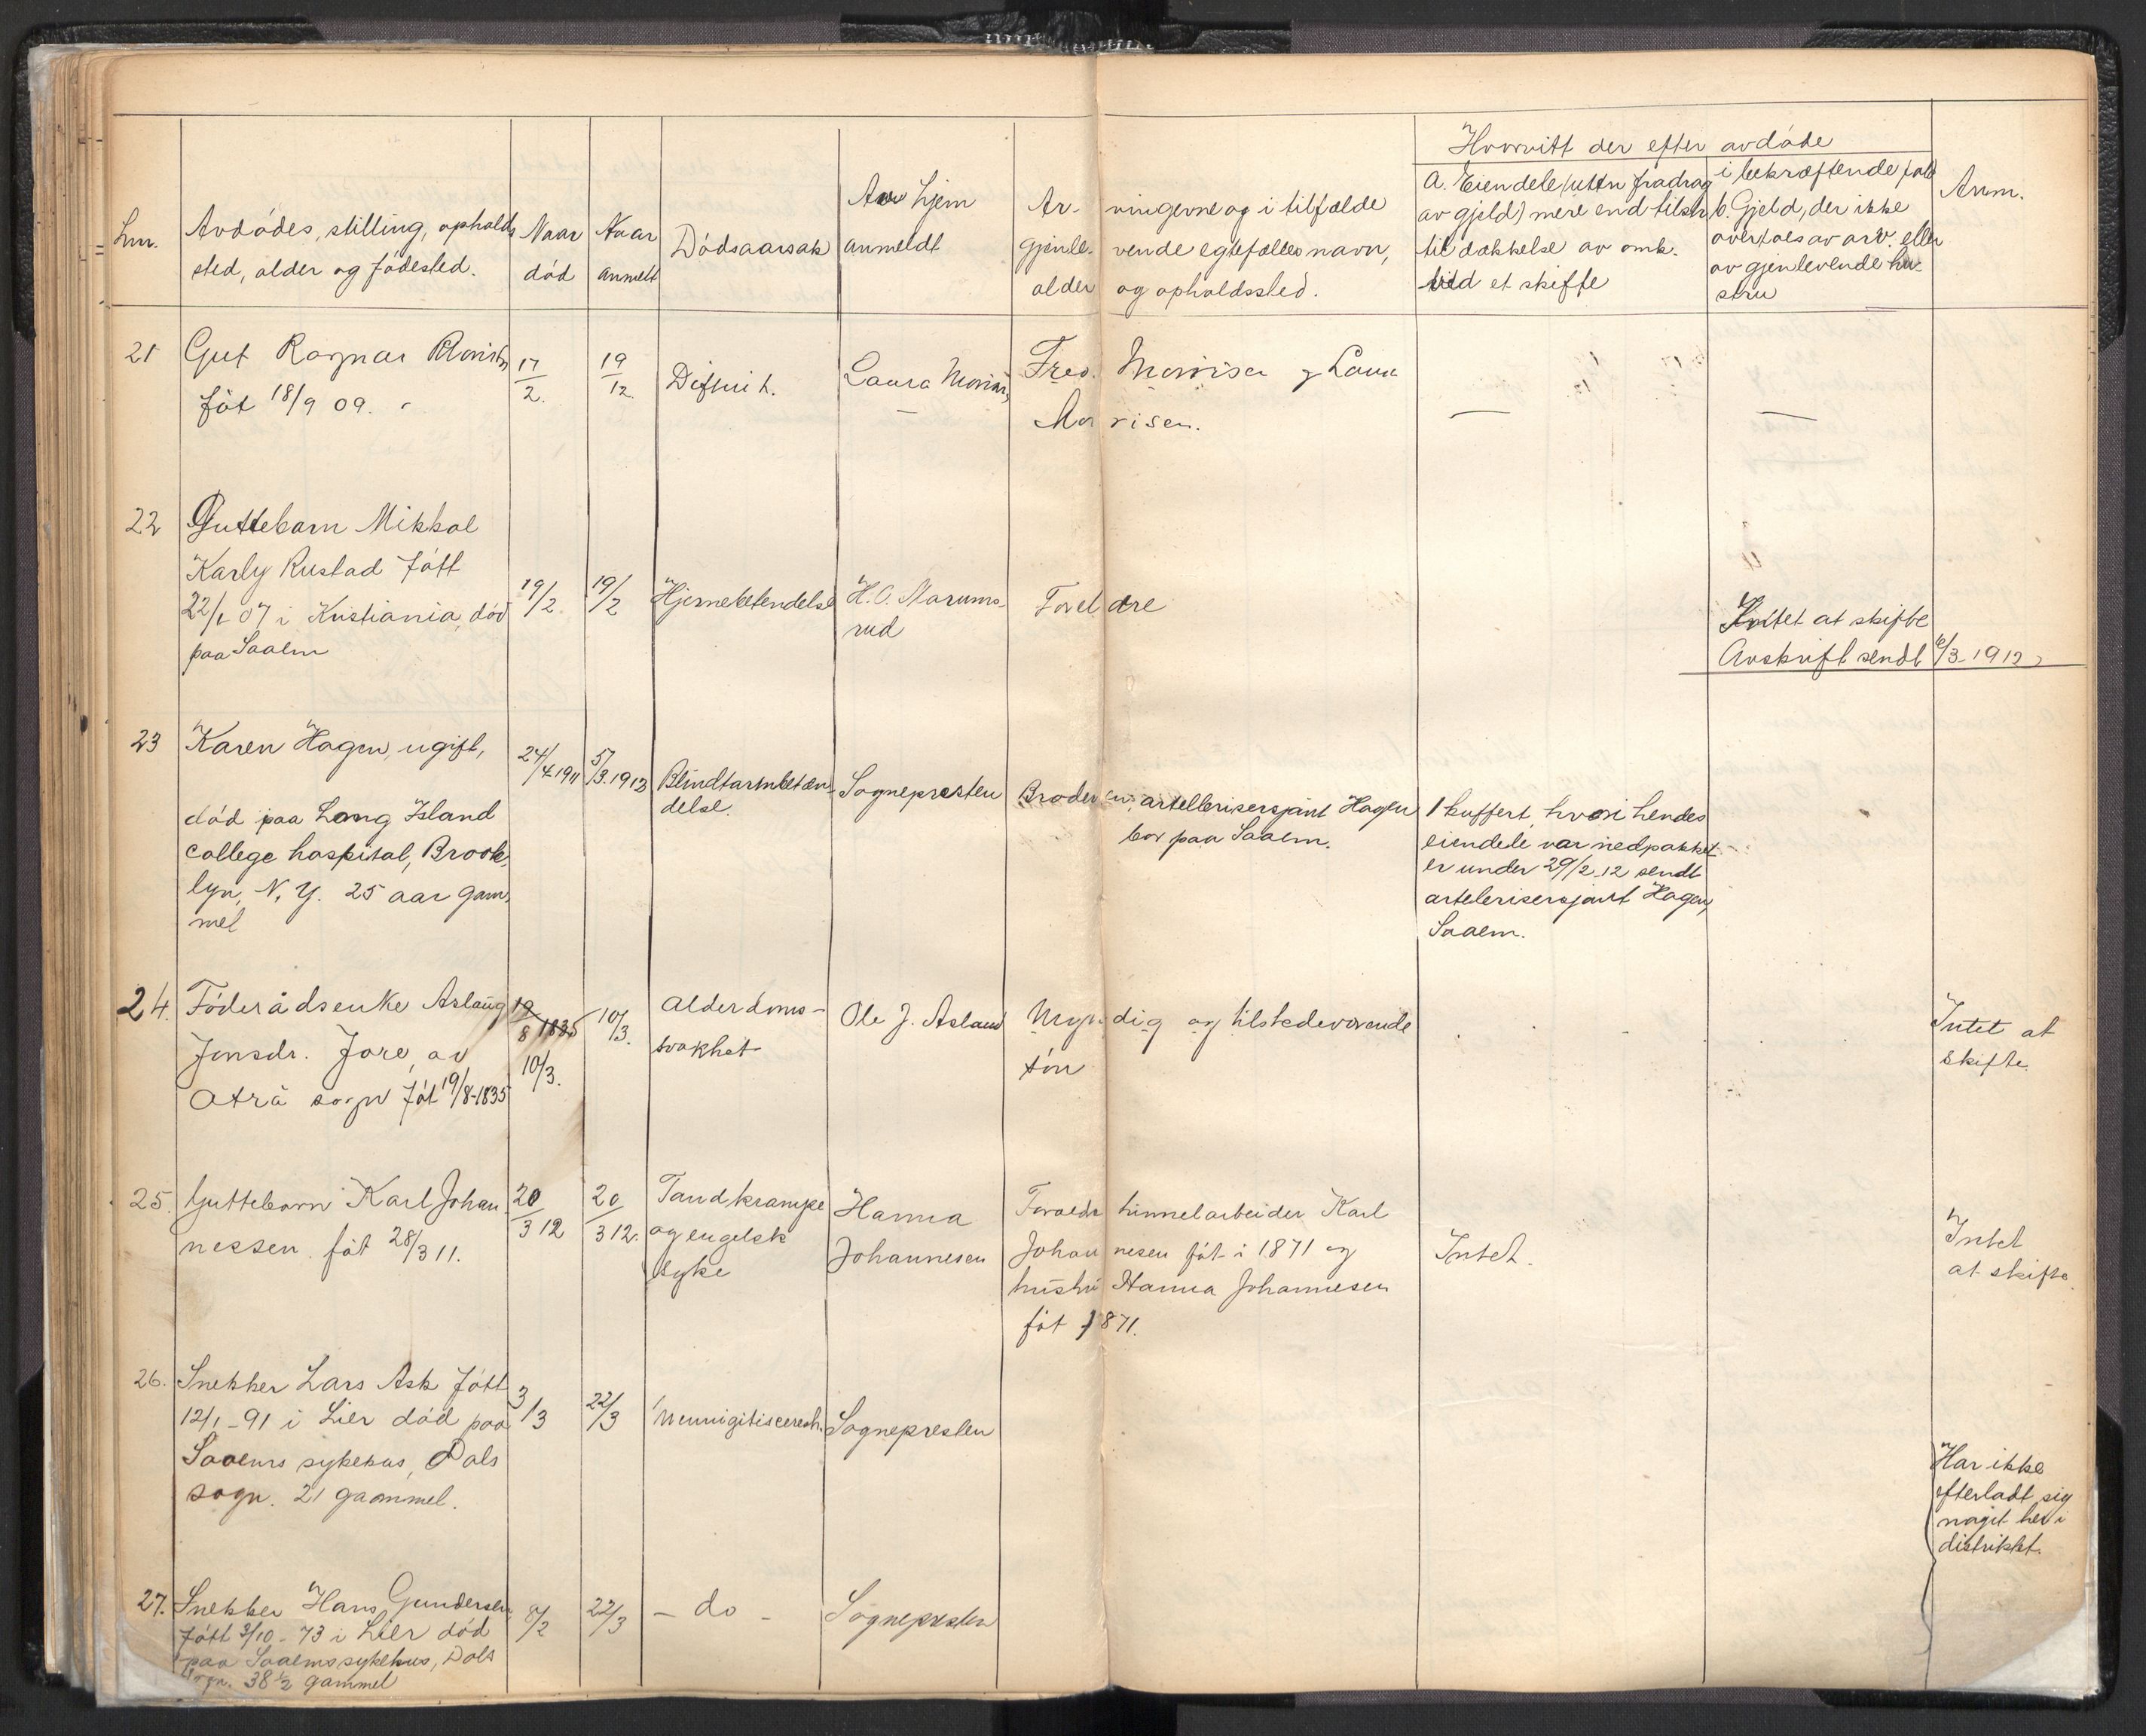 Hvorvitt der efter avdøde
Lnr.
Avdødes, stilling, opholds
sted, alder og fødested.
Naar
død
Naar
anmelt
Dødsaarsak
Av hjem
anmeldt
Ar- vingerne og i tilfælde
gjenle- vende egtefælles navn,
alder og opholdssted.
A. Eiendele (uten fradrag
av gjeld) mere end tilstr.
til dækkelse av omk.
ved et skifte
i bekræftende fald
b. Gjeld, der ikke
overtaes av arv. eller
av gjenlevende hu-
stru
Anm.
21
Gut Ragnar
føt 18/9 09.
17/2.
19/12.
Difterit.
Laura
Fred. Morrisen og Laura
Mor risen.
—
—
22
Guttebarn Mikkal
Karly Rustad født
22/1 07 i Kristiania, død
paa Saalm
19/2.
19/2
Hjernebetendelse
H. O. Marums-
rud
Forel dre
Intet at skifte
Avskrift sendt 6/3 1912
23
Karen Hagen, ugift,
død paa Long Island
College hospital, Brook-
lyn, N. Y. 25 aar gam-
mel
24/4 1911
5/3. 1912
Blindtarmbetæn-
delse.
Sognepresten
Broder en, artellerisersjant Hagen
bor paa Saalm.
1 kuffert, hvori hendes
eiendele var nedpakket
er under 29/2 12 sendt
artelerisersjant Hagen,
Saalm.
24.
Föderådsenke Aslaug
Jonsdr. Jore, av
Atrå sogn føt 19/8-1835
19/8 1835
10/3.
10/3.
Alderdoms-
svakhet
Ole J. Asland
Myn dig og tilstedeværende
søn
Intet at
skifte.
25.
Guttebarn Karl Johan
nessen. føt 28/3 11.
20/3 12
20/3 12.
Tandkrampe
og engelsk
syke
Hanna
Johannesen
Foreldr tunnelarbeider Karl
Johan nesen føt i 1871 og
hustru Hanna Johannesen
føt 1871.
Intet.
Intet
at skifte.
26.
Snekker Lars Ask født
12/1-91 i Lier død paa
Saalms sykehus, Dals
sogn. 21 gaommel.
3/3
22/3
Sognepresten
Har ikke
efterladt sig
nogit her i
distriktet.
27.
Snekker Hans Gundersen
født 3/10-73 i Lier død
paa Saalms sykehus, Dals
sogn. 38 1/2 gammel
8/2
22/3
- do -
Sognepresten